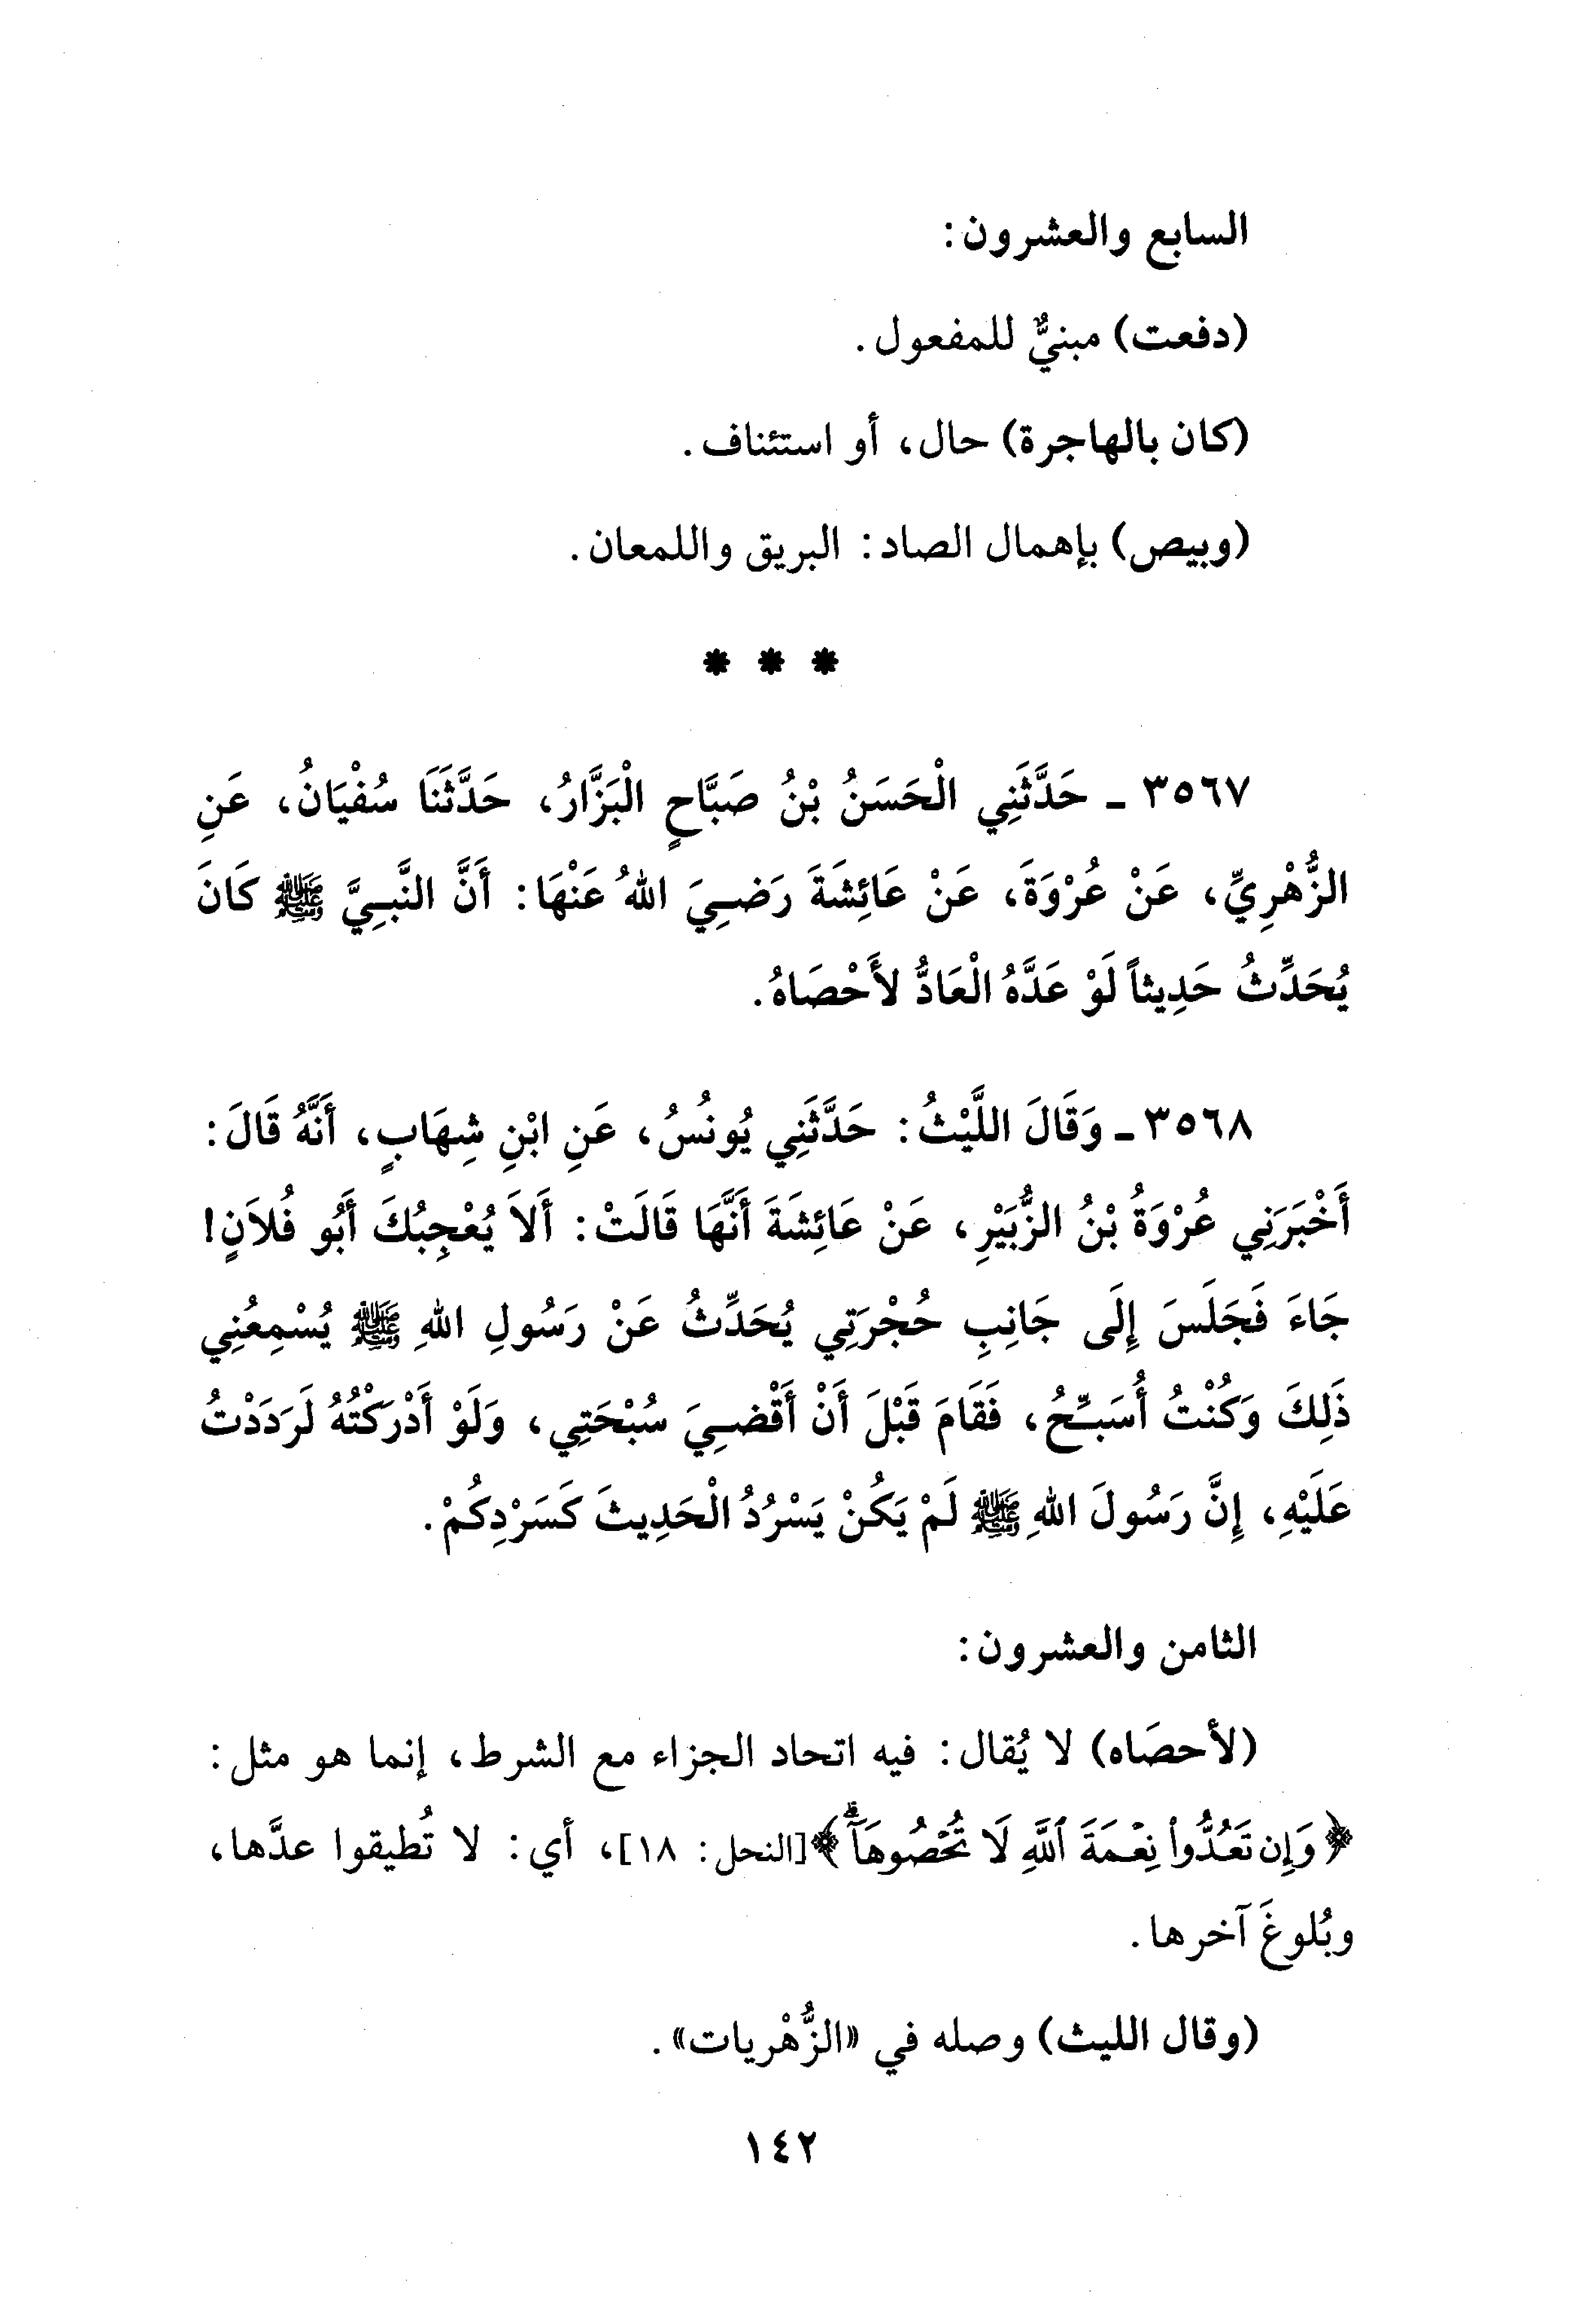 السابع والعشرون:
(دفعت) مبنيٌّ للمفعول.
(كان بالهاجرة) حال، أو استئناف.
(وبيص) بإهمال الصاد: البريق واللمعان.
* * *
٣٥٦٧ ـ حَدَّثَنِي الْحَسَنُ بْنُ صَبَّاحٍ الْبَزَّارُ، حَدَّثَنَا سُفْيَانُ، عَنِ
الزُّهْرِيِّ، عَنْ عُرْوَةَ، عَنْ عَائِشَةَ رَضِيَ اللهُ عَنْهَا: أَنَّ النَّبِيَّ ﷺ كَانَ
يُحَدِّثُ حَدِيثاً لَوْ عَدَّهُ الْعَادُّ لأَحْصَاهُ.
٣٥٦٨ ـ وَقَالَ اللَّيْثُ: حَدَّثَنِي يُونُسُ، عَنِ ابْنِ شِهَابٍ، أَنَّهُ قَالَ:
أَخْبَرَنِي عُرْوَةُ بْنُ الزُّبَيْرِ، عَنْ عَائِشَةَ أَنَّهَا قَالَتْ: أَلاَ يُعْجِبُكَ أَبُو فُلاَنٍ!
جَاءَ فَجَلَسَ إِلَى جَانِبِ حُجْرَتِي يُحَدِّثُ عَنْ رَسُولِ اللهِ ﷺ يُسْمِعُنِي
ذَلِكَ وَكُنْتُ أُسَبِّحُ، فَقَامَ قَبْلَ أَنْ أَقْضِيَ سُبْحَتِي، وَلَوْ أَدْرَكْتُهُ لَرَدَدْتُ
عَلَيْهِ، إِنَّ رَسُولَ اللهِ ﷺ لَمْ يَكُنْ يَسْرُدُ الْحَدِيثَ كَسَرْدِكُمْ.
الثامن والعشرون:
(لأحصَاه) لا يُقال: فيه اتحاد الجزاء مع الشرط، إنما هو مثل:
﴿وَإِن تَعُدُّواْ نِعْمَةَ ٱللَّهِ لَا تُحْصُوهَآ ۗ﴾ [النحل: ١٨]، أي: لا تُطيقوا عدَّها،
وبُلوغَ آخرها.
(وقال الليث) وصله في «الزُّهْريات».
١٤٢